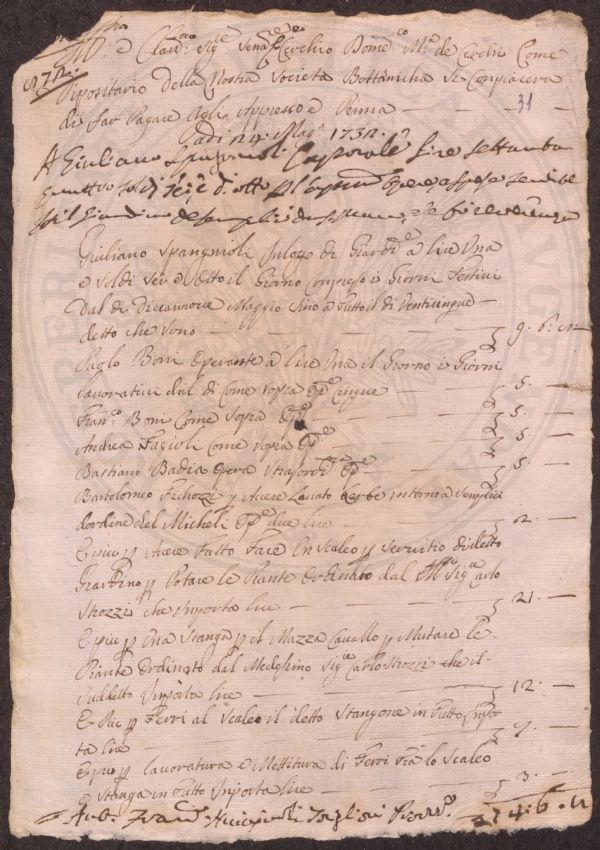 Ill.mo e Clar.mo Sig.re Senat.re Cerchio Dom.co M.a de Cerchi Come
Dipositario della Nostra Societa Bottanicha Si Compiacera
di far Pagare Agli Appresso e Prima — — — 31
Adi 24 Mag.o 1732
A Giuliano Spagnoli Caporale lire settanta
quattro soldi sei e d. otto p l opere, e spese servite
p il Giardino de semplici
Giuliano Spagnioli Capo di Giard.o a lire Una
e Soldi Sei e Otto il Giorno Compreso i Giorni Festivi
Dal di Diciannove Maggio Sino a Tutto il di Venticinque —
detto che sono — — — 9. 6.
Paolo Boni Operante a lire Una il Giorno i Giorni
lavorativi dal di Come Sopra Op.e Cinque — 5. —
Fran.co Boni Come Sopra Op.e — — 5. —
Andrea Fagioli Come Sopra Op.e — 5. —
Bastiano Badia Opera Straord.ria Op.e — 5. —
Bartolomeo p Avere Levato Erbe intorno a Semplici
dordine del Micheli Op.e due lire — 2. —
E piu p Avere Fatto Fare Un Scaleo p Servitio di detto
Giardino p Potare le Piante Ordinato dal Ill.mo Sig.re Carlo
Strozzi che Importa lire — 21. —
E piu p Una Stanga p il Mazza Cavallo p Mutare le
Piante Ordinato dal Medesimo Sig.re Carlo Strozzi che il
Suddetto Importa lire — 12. —
E Piu p Ferri al Scaleo il detto Stangone in Tutto Impor
ta lire — 7. —
E piu p lavoratura e Mettitura di Ferri Fra lo Scaleo
e Stanga in Tutto Importa lire — 3. —
74. 6.